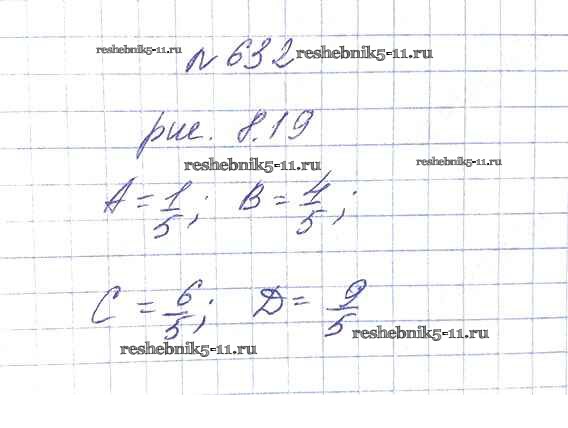 reshebnik5-11.ru
№ 632 reshebnik5-11.ru
рис. 8.19
reshebnik5-11.ru reshebnik5-11.ru
A = 1/5; B = 4/5;
C = 6/5; D = 9/5
reshebnik5-11.ru reshebnik5-11.ru